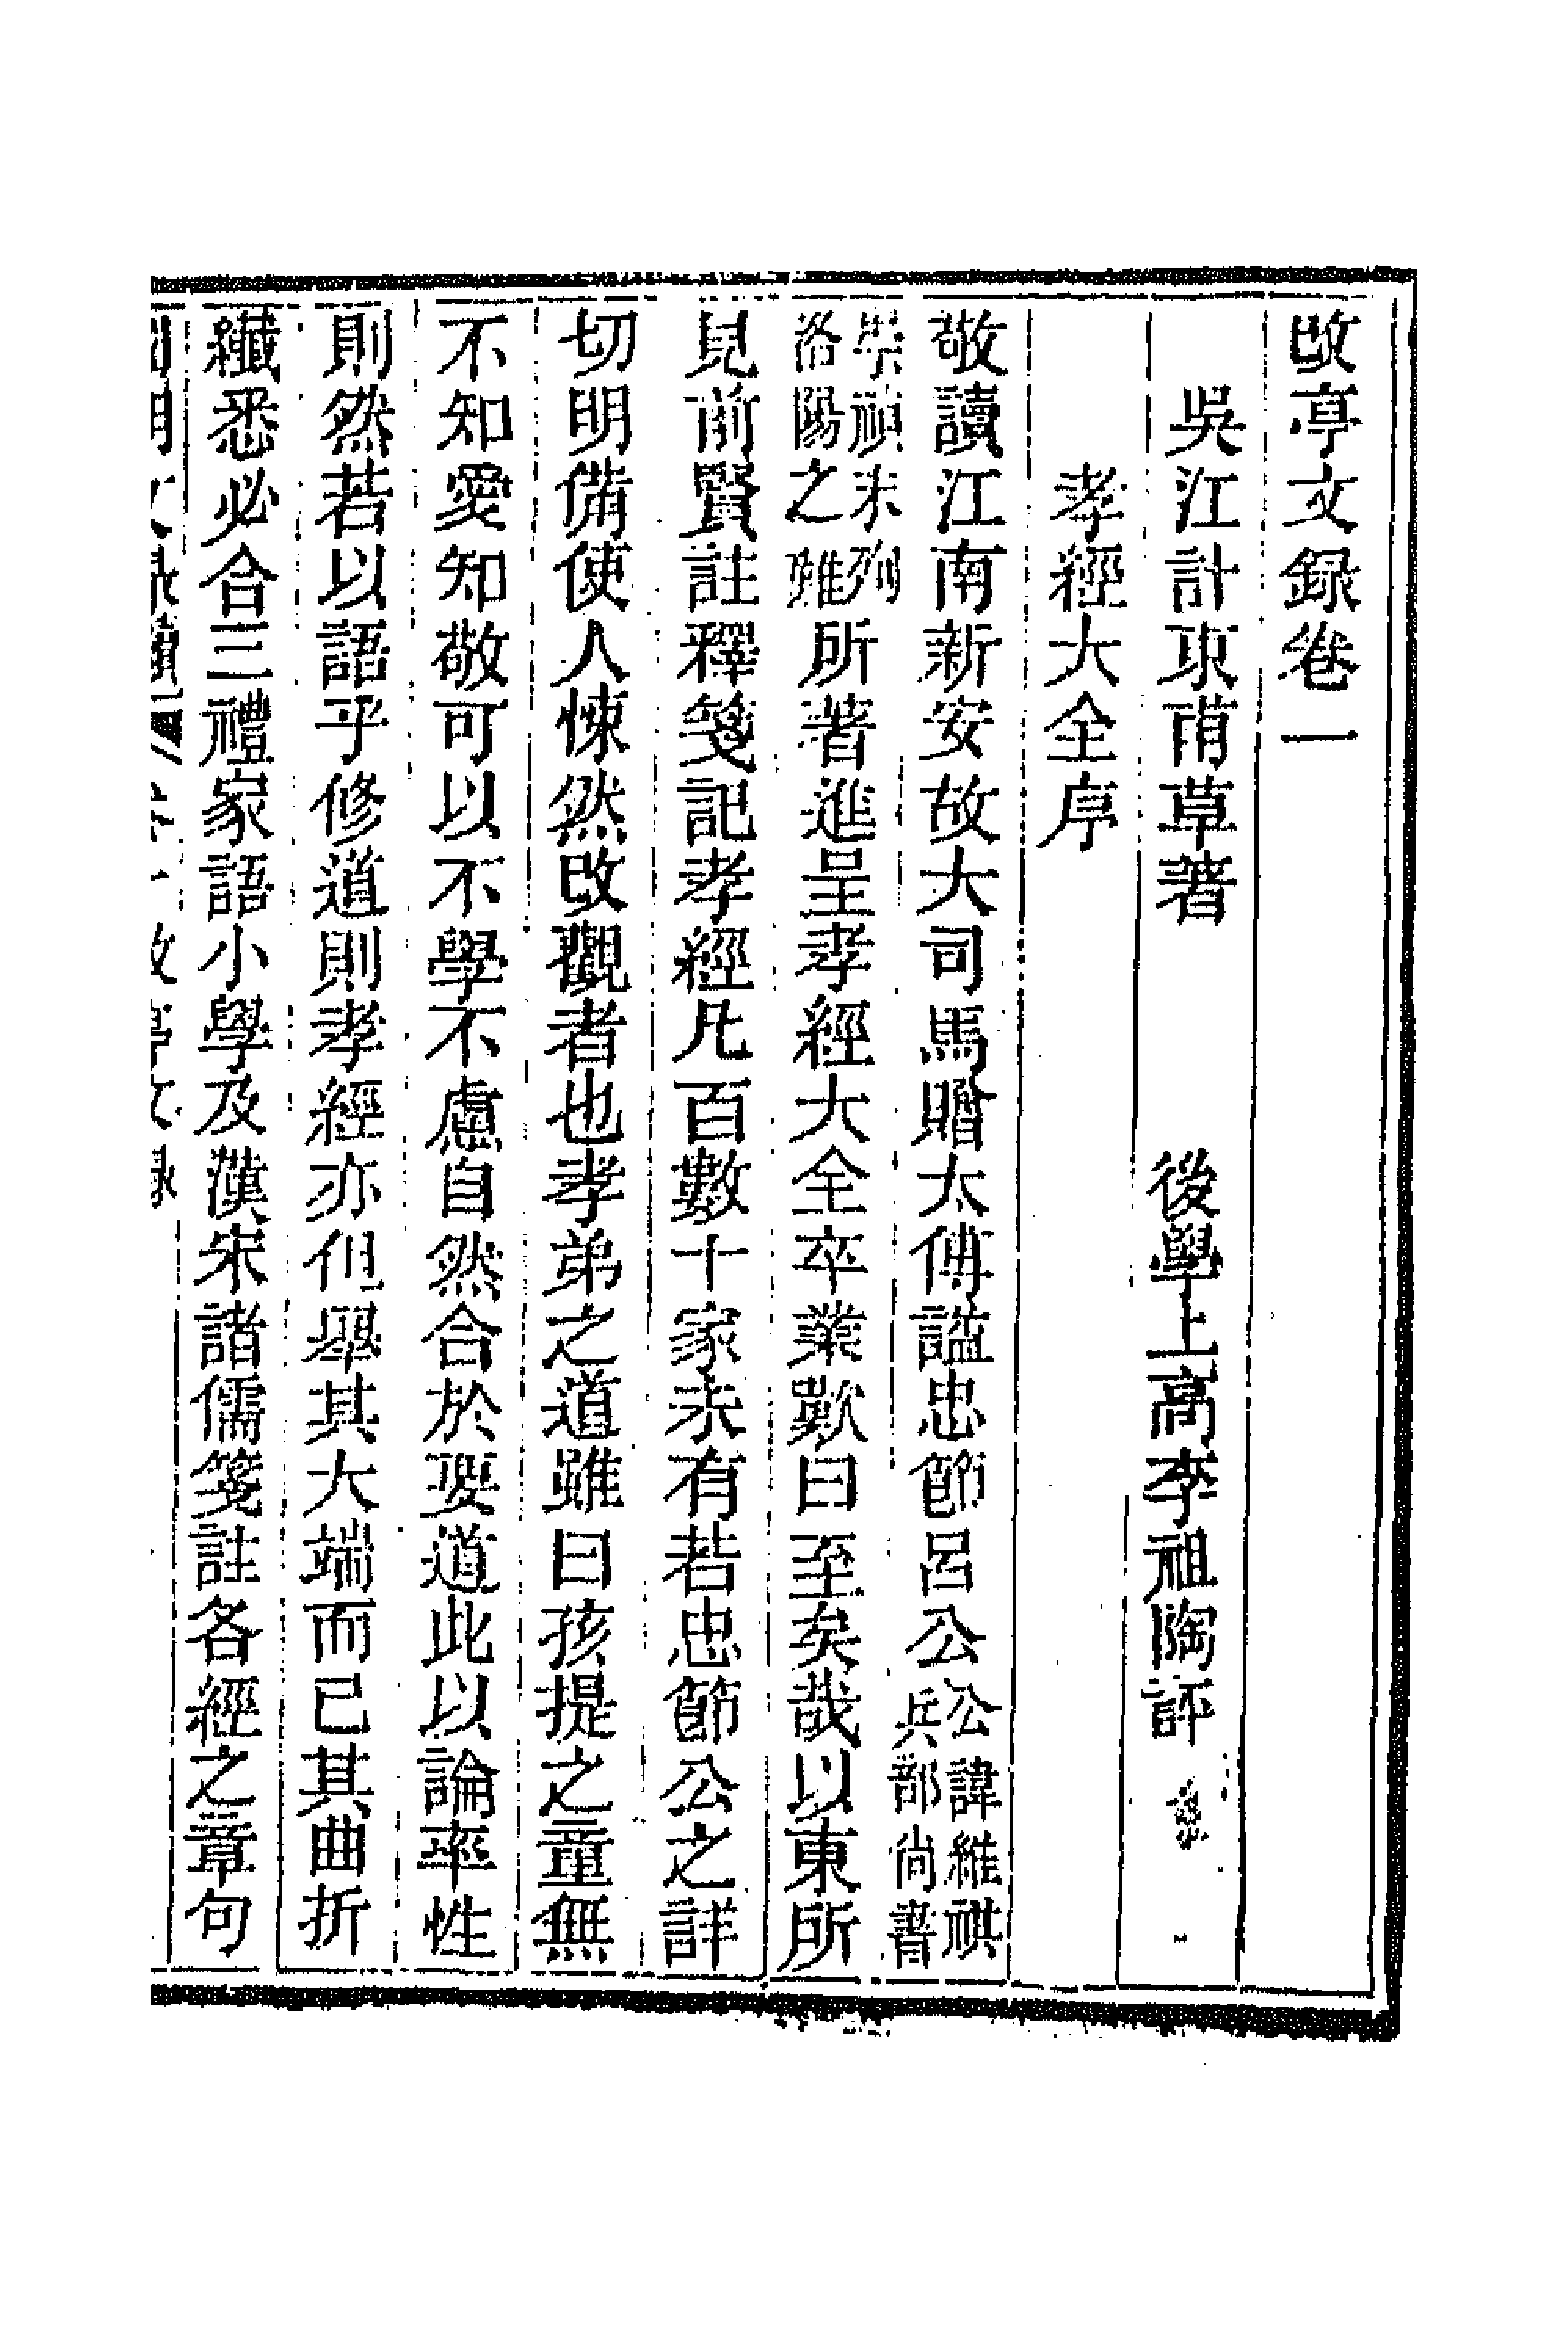 改亭文録卷一
吳江計東甫草著　後學上高李祖陶評
孝經大全序
敬讀江南新安故大司馬贈太傅諡忠節呂公公諱維祺兵部尚書
崇禎末殉洛陽之難所著進呈孝經大全卒業歎曰至矣哉以東所
見前賢註釋箋記孝經凡百數十家未有若忠節公之詳
切明備使人悚然改觀者也孝弟之道雖曰孩提之童無
不知愛知敬可以不學不慮自然合於要道此以論率性
則然若以語乎修道則孝經亦但舉其大端而已其曲折
纖悉必合三禮家語小學及漢宋諸儒箋註各經之章句